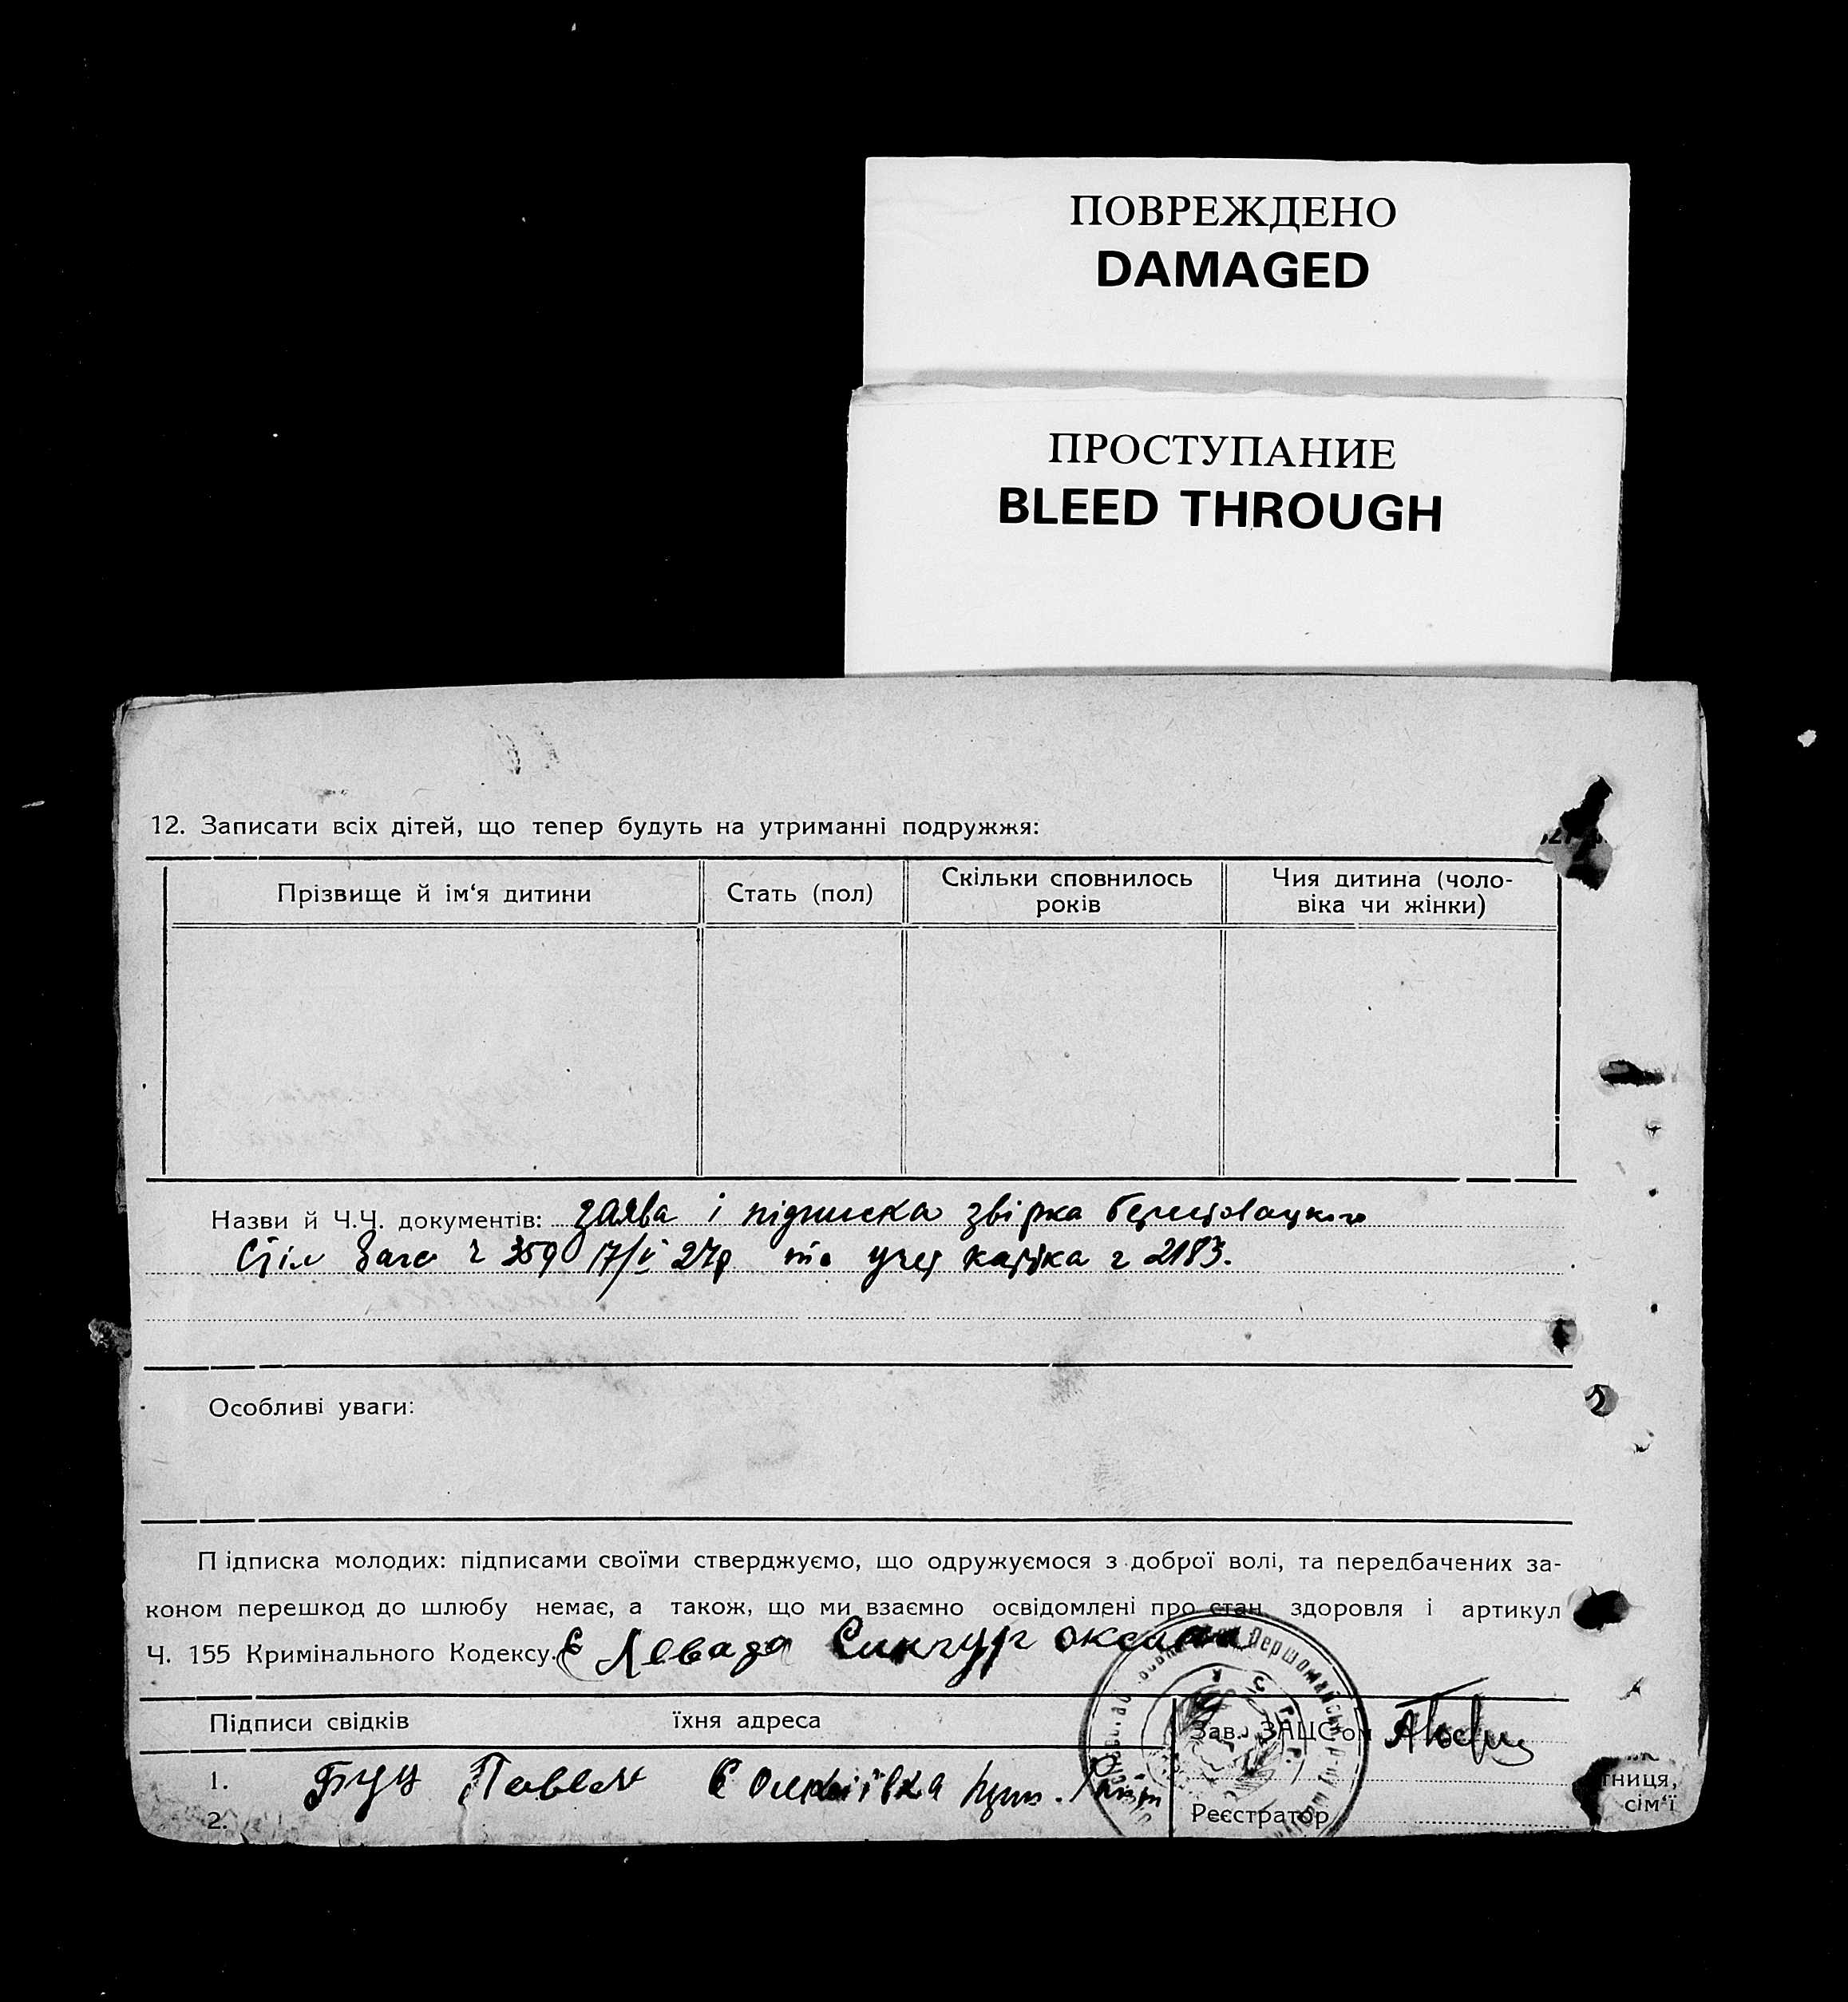 ПОВРЕЖДЕНО
DAMAGED
ПРОСТУПАНИЕ
BLEED THROUGH
12. Записати всіх дітей, що тепер будуть на утриманні подружжя:
Прізвище й ім‘я дитини
Стать (пол)
Скільки сповнилось
років
Чия дитина (чоло-
віка чи жінки)
Назви й Ч.Ч. документів: заява і підписка звірка
359 17/V 27р та учет картка ч 2183.
Особливі уваги:
Підписка молодих: підписами своїми стверджуємо, що одружуємося з доброї волі, та передбачених за-
коном перешкод до шлюбу немає, а також, що ми взаємно освідомлені про стан здоровля і артикул
Ч. 155 Кримінального Кодексу. Левада Сингур Оксана
Підписи свідків
їхня адреса
Зав. ЗАЦС‘ом
1. Буц Павел
2.
Реєстратор
тниця,
сім‘ї